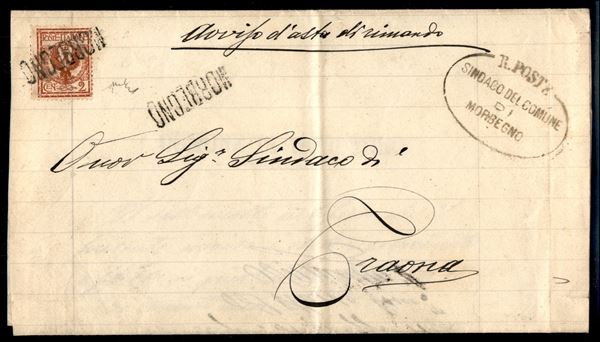 Avviso d'asta di rimando
R. POSTE
SINDACO DEL COMUNE
DI
MORBEGNO
MORBEGNO
MORBEGNO
CEN 2
Onor Sigr Sindaco di
Traona